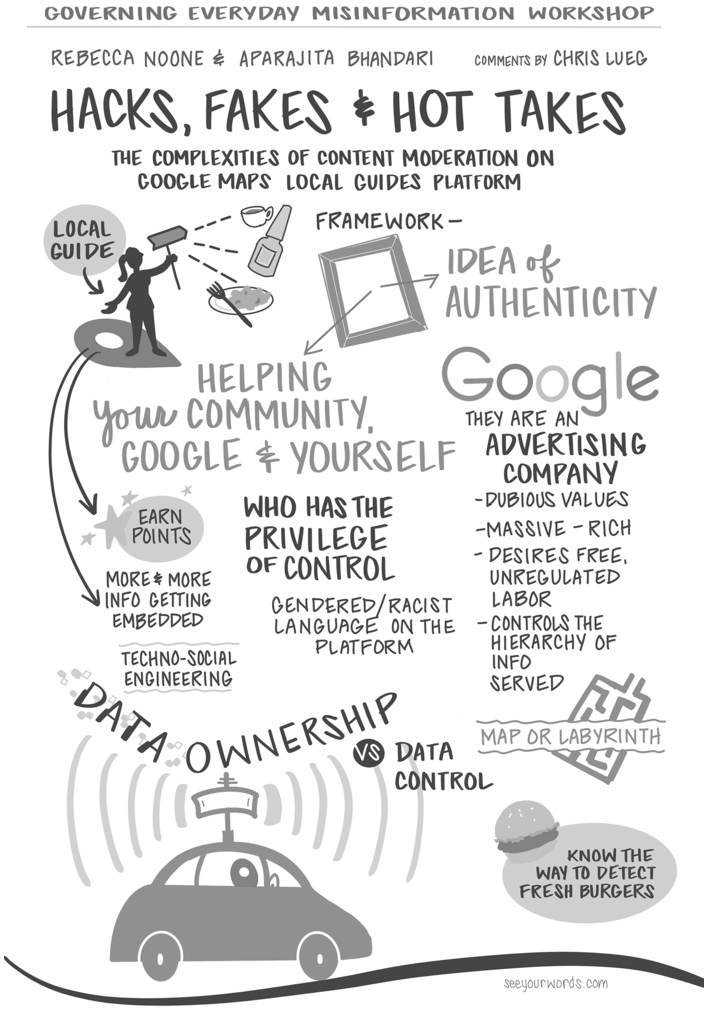 GOVERNING EVERYDAY MISINFORMATION WORKSHOP
REBECCA NOONE & APARAJITA BHANDARI
COMMENTS BY CHRIS LUEG
HACKS, FAKES & HOT TAKES
THE COMPLEXITIES OF CONTENT MODERATION ON
GOOGLE MAPS LOCAL GUIDES PLATFORM
LOCAL
GUIDE
FRAMEWORK –
IDEA of
AUTHENTICITY
HELPING
your COMMUNITY,
GOOGLE & YOURSELF
Google
THEY ARE AN
ADVERTISING
COMPANY
- DUBIOUS VALUES
- MASSIVE - RICH
- DESIRES FREE,
UNREGULATED
LABOR
- CONTROLS THE
HIERARCHY OF
INFO
SERVED
EARN
POINTS
MORE & MORE
INFO GETTING
EMBEDDED
TECHNO-SOCIAL
ENGINEERING
WHO HAS THE
PRIVILEGE
OF CONTROL
GENDERED/RACIST
LANGUAGE ON THE
PLATFORM
MAP OR LABYRINTH
DATA OWNERSHIP
VS DATA
CONTROL
KNOW THE
WAY TO DETECT
FRESH BURGERS
seeyourwords.com